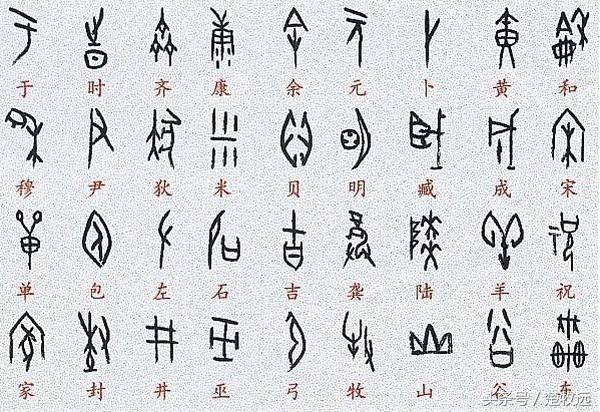 于 时 齐 康 余 元 卜 黄 和
穆 尹 狄 米 贝 明 臧 成 宋
单 包 左 石 吉 龚 陆 羊 祝
家 封 井 巫 弓 牧 山 公 东
头条号 / 楚牧远